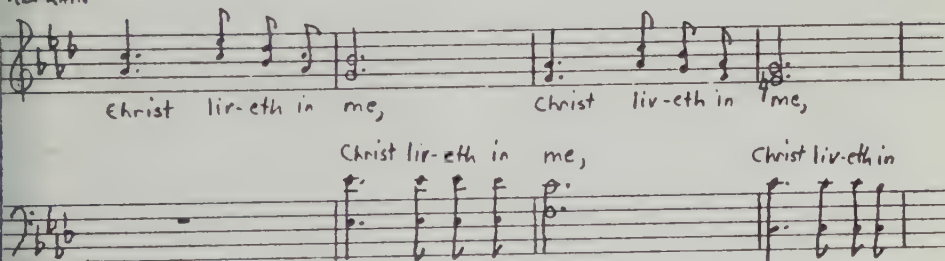 Christ liv-eth in me, Christ liv-eth in me,
Christ liv-eth in me, Christ liv-eth in